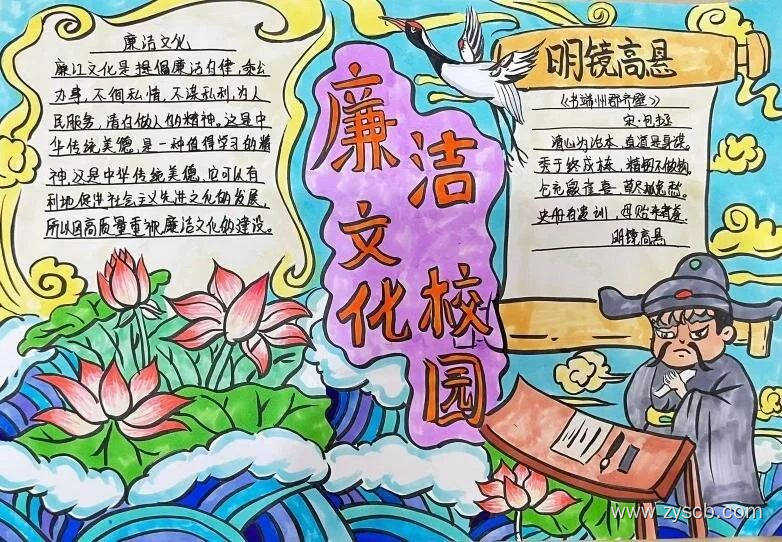 廉洁文化
廉洁文化是提倡廉洁自律,秉公
办事,不徇私情,不谋私利,为人
民服务,清白做人的精神。这是中
华传统美德,是一种值得学习的精
神,这是中华传统美德,它可以有
利地促进社会主义先进文化的发展,
所以因高质量重视廉洁文化的建设。
廉洁
文化
校园
明镜高悬
《书端州郡斋壁》
宋·包拯
清心为治本,直道是身谋。
秀干终成栋,精钢不做钩。
仓充鼠雀喜,草尽狐兔愁。
史册有遗训,毋贻来者羞。
明镜高悬
www.zyscb.com